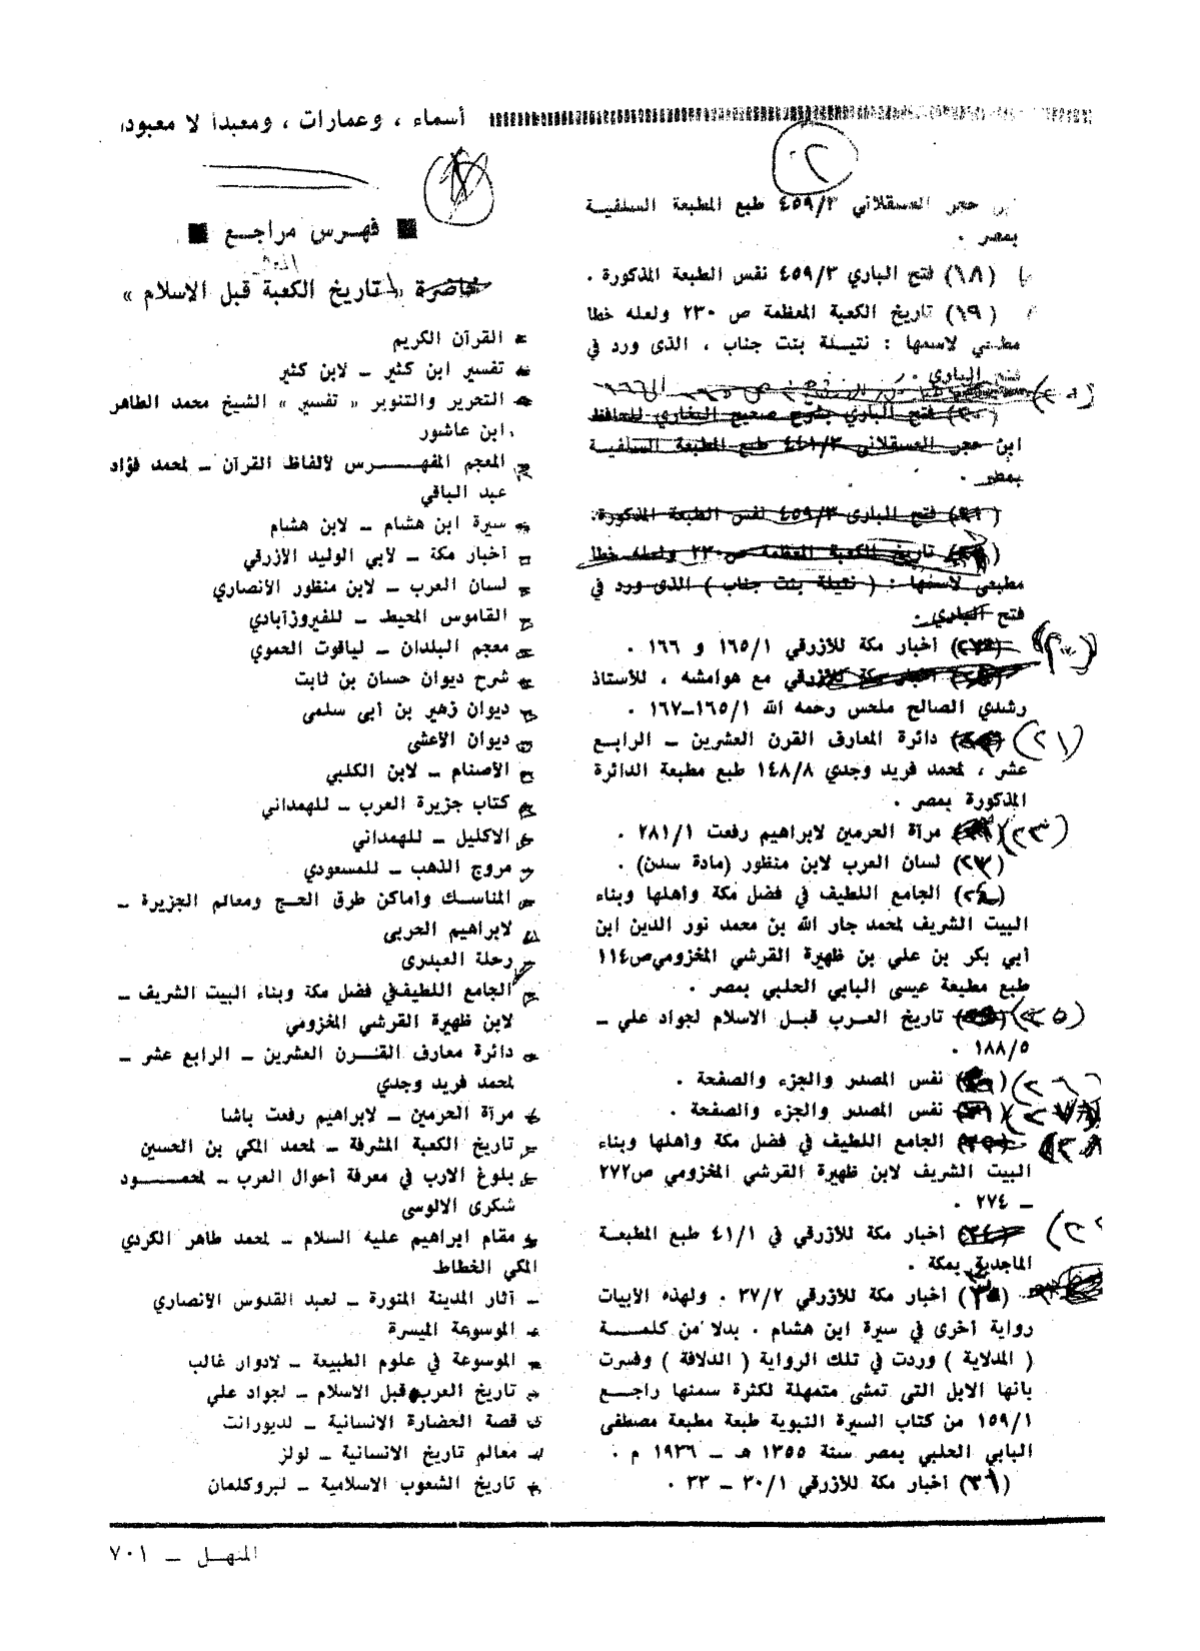 أسماء ، وعمارات ، ومعبدا لا معبودا
٢٠
ابن حجر العسقلاني ٤٥٩/٣ طبع المطبعة السلفية
بمصر .
(١٨) فتح الباري ٤٥٩/٣ نفس الطبعة المذكورة .
(١٩) تاريخ الكعبة المعظمة ص ٢٣٠ ولعله خطا
مطبعي لاسمها : نتيلة بنت جناب ، الذى ورد في
فتح البارى .
(٢٠) فتح الباري بشرح صحيح البخاري للحافظ
ابن حجر العسقلاني ٤٤١/٣ طبع المطبعة السلفية
بمصر .
(٢١) فتح البارى ٤٥٩/٣ نفس الطبعة المذكورة.
تاريخ الكعبة المعظمة ص ٢٣٠ ولعله خطا
مطبعى لاسمها : ( نتيلة بنت جناب ) الذى ورد في
فتح البارى .
أخبار مكة للأزرقي ١٦٥/١ و ١٦٦ .
أخبار مكة للأزرقي مع هوامشه ، للأستاذ
رشدي الصالح ملحس رحمه الله ١٦٥/١-١٦٧ .
(٢١) دائرة المعارف القرن العشرين - الرابع
عشر ، لمحمد فريد وجدي ١٤٨/٨ طبع مطبعة الدائرة
المذكورة بمصر .
(٢٣) مرآة الحرمين لابراهيم رفعت ٢٨١/١ .
لسان العرب لابن منظور (مادة سدن) .
الجامع اللطيف في فضل مكة وأهلها وبناء
البيت الشريف لمحمد جار الله بن محمد نور الدين ابن
أبي بكر بن علي بن ظهيرة القرشي المخزومي ص١١٤
طبع مطبعة عيسى البابي الحلبي بمصر .
(٢٥) تاريخ العرب قبل الاسلام لجواد علي -
١٨٨/٥ .
(٢٦) نفس المصدر والجزء والصفحة .
(٢٧) نفس المصدر والجزء والصفحة .
(٢٨) الجامع اللطيف في فضل مكة وأهلها وبناء
البيت الشريف لابن ظهيرة القرشي المخزومي ص٢٧٢
- ٢٧٤ .
أخبار مكة للأزرقي في ٤١/١ طبع المطبعة
الماجدية بمكة .
أخبار مكة للأزرقي ٣٧/٢ . ولهذه الأبيات
رواية أخرى في سيرة ابن هشام . بدلا من كلمة
( المدلاية ) وردت في تلك الرواية ( الدلافة ) وفسرت
بانها الابل التى تمشى متمهلة لكثرة سمنها راجع
١٥٩/١ من كتاب السيرة النبوية طبعة مطبعة مصطفى
البابي الحلبي بمصر سنة ١٣٥٥ هـ - ١٩٣٦ م .
(٣١) أخبار مكة للأزرقي ٣٠/١ - ٣٣ .
■ فهرس مراجع ■
محاضرة « تاريخ الكعبة قبل الاسلام »
- القرآن الكريم
- تفسير ابن كثير - لابن كثير
- التحرير والتنوير « تفسير » الشيخ محمد الطاهر
ابن عاشور
- المعجم المفهرس لألفاظ القرآن - لمحمد فؤاد
عبد الباقي
- سيرة ابن هشام - لابن هشام
- أخبار مكة - لأبي الوليد الأزرقي
- لسان العرب - لابن منظور الأنصاري
- القاموس المحيط - للفيروزآبادي
- معجم البلدان - لياقوت الحموي
- شرح ديوان حسان بن ثابت
- ديوان زهير بن أبى سلمى
- ديوان الأعشى
- الأصنام - لابن الكلبي
- كتاب جزيرة العرب - للهمداني
- الاكليل - للهمداني
- مروج الذهب - للمسعودي
- المناسك وأماكن طرق الحج ومعالم الجزيرة -
لابراهيم الحربى
- رحلة العبدرى
- الجامع اللطيف في فضل مكة وبناء البيت الشريف -
لابن ظهيرة القرشي المخزومي
- دائرة معارف القرن العشرين - الرابع عشر -
لمحمد فريد وجدي
- مرآة الحرمين - لابراهيم رفعت باشا
- تاريخ الكعبة المشرفة - لمحمد المكي بن الحسين
- بلوغ الأرب في معرفة أحوال العرب - لمحمود
شكرى الالوسى
- مقام ابراهيم عليه السلام - لمحمد طاهر الكردي
المكي الخطاط
- آثار المدينة المنورة - لعبد القدوس الأنصاري
- الموسوعة الميسرة
- الموسوعة في علوم الطبيعة - لادوار غالب
- تاريخ العرب قبل الاسلام - لجواد علي
- قصة الحضارة الانسانية - لديورانت
- معالم تاريخ الانسانية - لولز
- تاريخ الشعوب الاسلامية - لبروكلمان
المنهل - ٧٠١